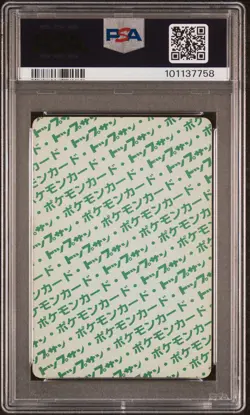 PSA
101137758
トップサン
ポケモンカード・トップサン
トップサン・ポケモンカード
ポケモンカード・トップサン
トップサン・ポケモンカード
ポケモンカード・トップサン
トップサン・ポケモンカード
ポケモンカード・トップサン
トップサン・ポケモンカード
ポケモンカード・トップサン
トップサン・ポケモンカード
ポケモンカード